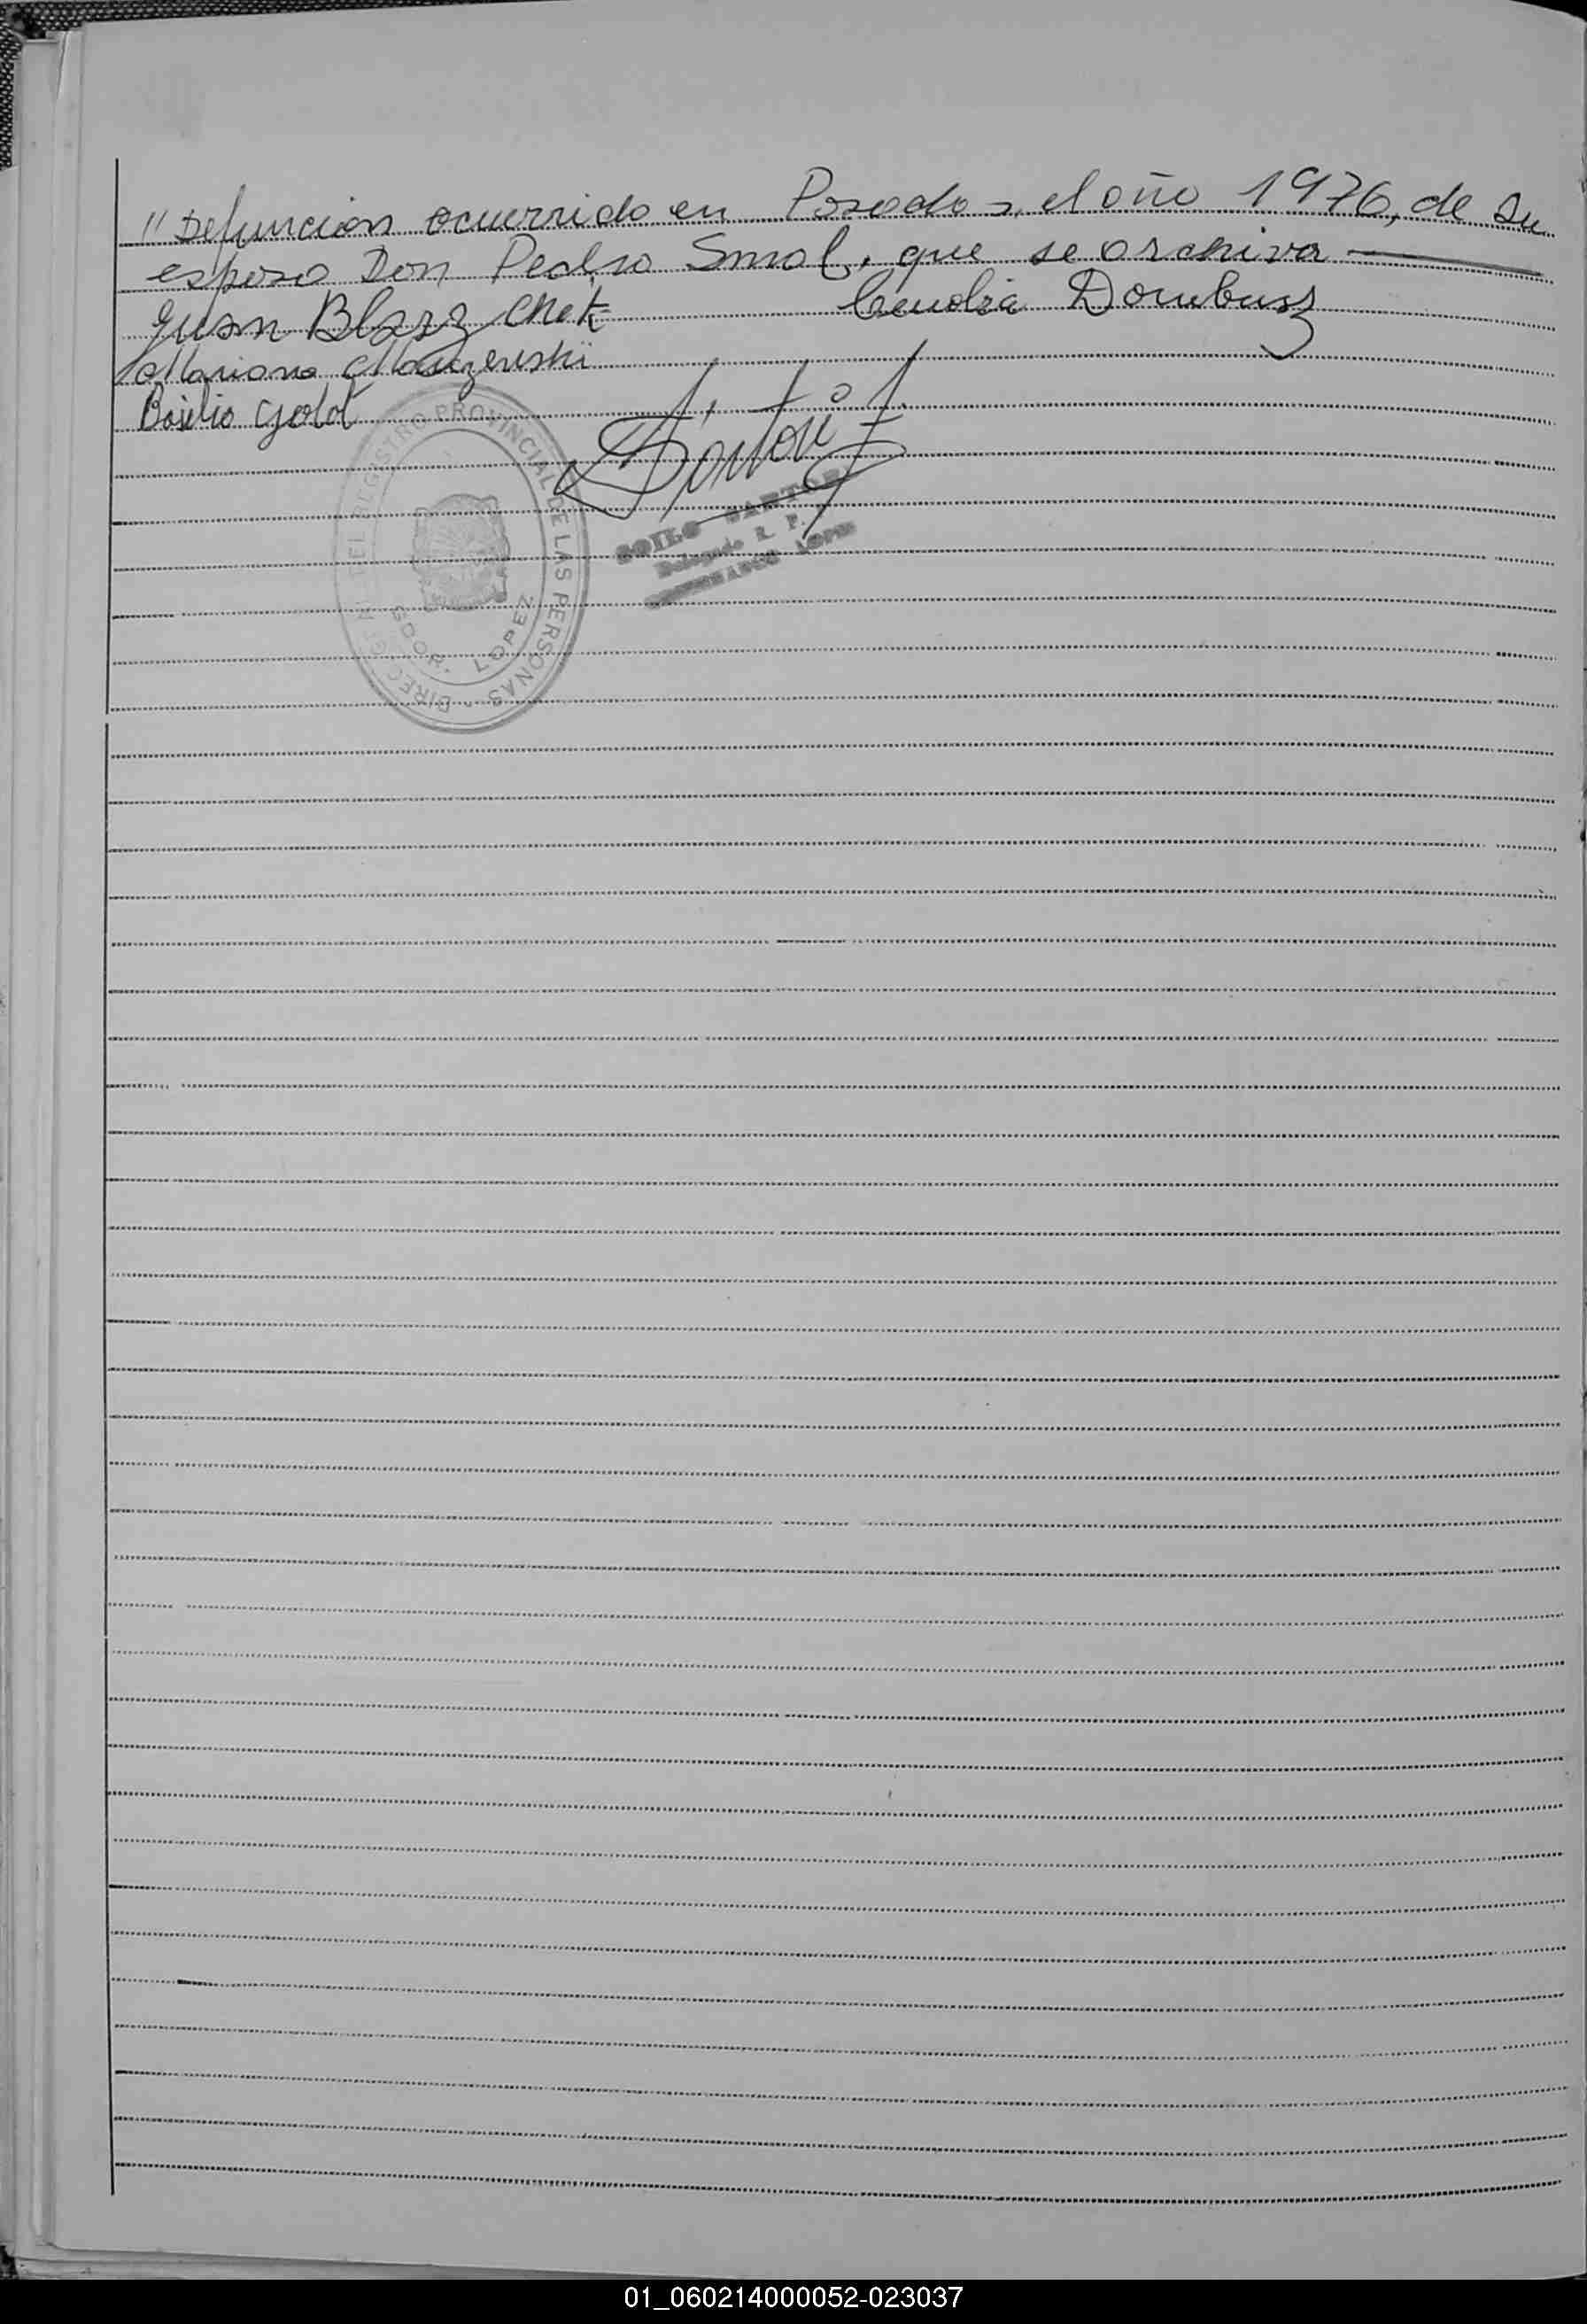 " Defuncion ocurrido en Posadas, el año 1976, de su
esposo Don Pedro Smal, que se archiva
Juan Blaszchek
Dombusz
Mariana
Basilio
DIREC GRAL DEL REGISTRO PROVINCIAL DE LAS PERSONAS -
GDOR. LOPEZ
SOILO SARTORI
Delegado R. P.
GOBERNADOR LOPEZ
01_060214000052-023037